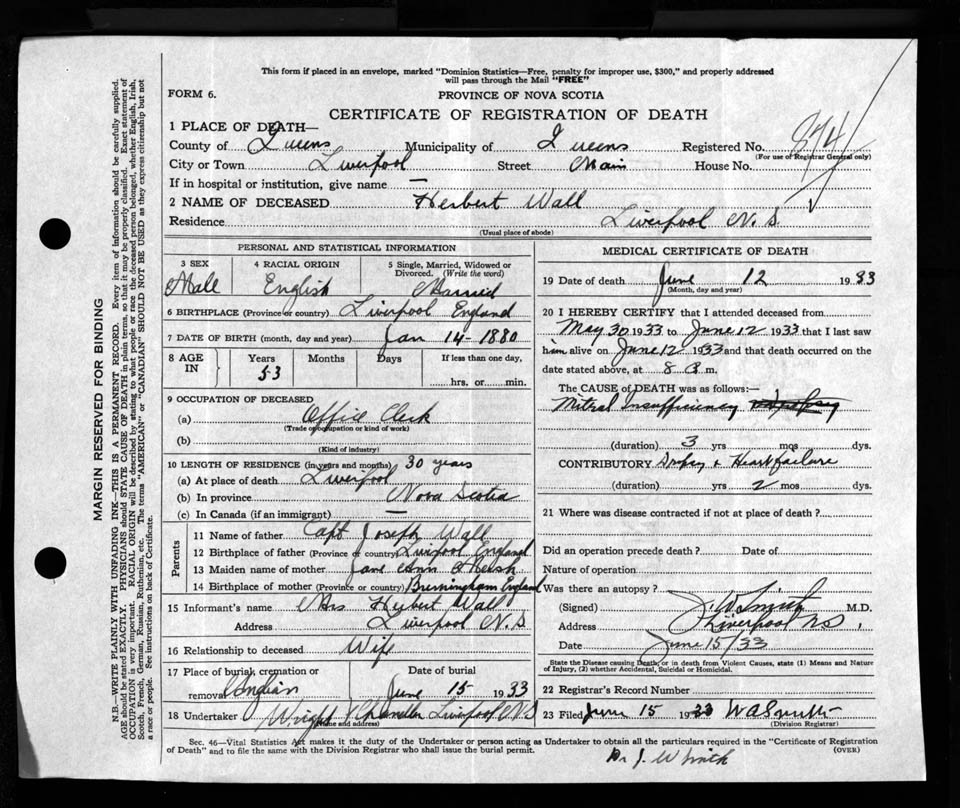 This form if placed in an envelope, marked "Dominion Statistics—Free, penalty for improper use, $300," and properly addressed
will pass through the Mail "FREE"
FORM 6.
PROVINCE OF NOVA SCOTIA
CERTIFICATE OF REGISTRATION OF DEATH
1 PLACE OF DEATH—
County of Queens Municipality of Queens Registered No. 874
(For use of Registrar General only)
City or Town Liverpool Street Main House No.
If in hospital or institution, give name —
2 NAME OF DECEASED Herbert Wall
Residence Liverpool N.S.
(Usual place of abode)
PERSONAL AND STATISTICAL INFORMATION
3 SEX 4 RACIAL ORIGIN 5 Single, Married, Widowed or
Divorced. (Write the word)
Male English Married
6 BIRTHPLACE (Province or country) Liverpool England
7 DATE OF BIRTH (month, day and year) Jan 14 - 1880
8 AGE IN Years Months Days If less than one day,
53
hrs. or min.
9 OCCUPATION OF DECEASED
(a) Office Clerk
(Trade occupation or kind of work)
(b)
(Kind of industry)
10 LENGTH OF RESIDENCE (in years and months) 30 years
(a) At place of death Liverpool
(b) In province Nova Scotia
(c) In Canada (if an immigrant) —
Parents
11 Name of father Capt Joseph Wall
12 Birthplace of father (Province or country) Liverpool England
13 Maiden name of mother Jane Ann
14 Birthplace of mother (Province or country) Birmingham England
15 Informant's name Mrs Herbert Wall
Address Liverpool N.S
16 Relationship to deceased Wife
17 Place of burial, cremation or Date of burial
removal June 15 1933
18 Undertaker Wright Chandler Liverpool N.S
(Name and address)
MEDICAL CERTIFICATE OF DEATH
19 Date of death June 12 1933
(Month, day and year)
20 I HEREBY CERTIFY that I attended deceased from
May 30 1933 to June 12 1933 that I last saw
him alive on June 12 1933 and that death occurred on the
date stated above, at 8 a.m.
The CAUSE OF DEATH was as follows:—
Mitral Insufficiency
(duration) 3 yrs mos dys.
CONTRIBUTORY Dropsy & Heart failure
(duration) yrs 2 mos. dys.
21 Where was disease contracted if not at place of death?
Did an operation precede death? Date of
Nature of operation
Was there an autopsy?
(Signed) J. W Smith M.D.
Address Liverpool NS
Date June 15/33
State the Disease causing Death, or in death from Violent Causes, state (1) Means and Nature
of Injury, (2) whether Accidental, Suicidal or Homicidal.
22 Registrar's Record Number
23 Filed June 15 1933 W A Smith
(Division Registrar)
Sec. 46—Vital Statistics Act makes it the duty of the Undertaker or person acting as Undertaker to obtain all the particulars required in the "Certificate of Registration
of Death" and to file the same with the Division Registrar who shall issue the burial permit.
(OVER)
Dr J. W Smith
MARGIN RESERVED FOR BINDING
N.B.—WRITE PLAINLY WITH UNFADING INK—THIS IS A PERMANENT RECORD. Every item of information should be carefully supplied.
AGE should be stated EXACTLY. PHYSICIANS should STATE CAUSE OF DEATH in plain terms, so that it may be properly classified. Exact statement of
OCCUPATION is very important. RACIAL ORIGIN will be described by stating to what people or race the deceased person belonged, whether English, Irish,
Scotch, French, German, Russian, Ruthenian, etc. The terms "AMERICAN" or "CANADIAN" SHOULD NOT BE USED as they express citizenship but not
a race or people. See instructions on back of Certificate.